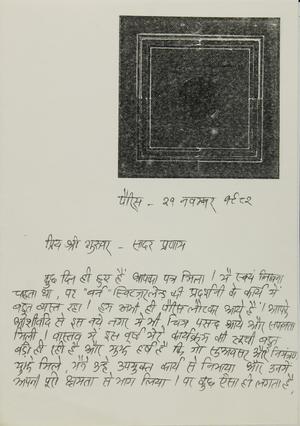 पैरिस - २१ नवम्बर १९८२
प्रिय श्री गुजराल - सादर प्रणाम
कुछ दिन ही हुए हैं आपका पत्र मिला। मैं स्वयं लिखना
चाहता था, पर "बर्न" स्विटजरलैण्ड की प्रदर्शनी के कार्य में
बहुत व्यस्त रहा। हम अभी ही पैरिस लौटकर आये हैं। आपके
आशीर्वाद से इस नये नगर में भी चित्र पसन्द आये और सफलता
मिली। वास्तव में इस वर्ष मेरे कार्यक्रम की सूची बहुत
बड़ी ही रही है और मुझे हर्ष है कि, जो शुभावसर और निमंत्रण
मुझे मिले, मैंने उन्हें उपयुक्त कार्य से निभाया और उनमें
अपनी पूरी क्षमता से भाग लिया। पर कुछ ऐसा हो लगता है,